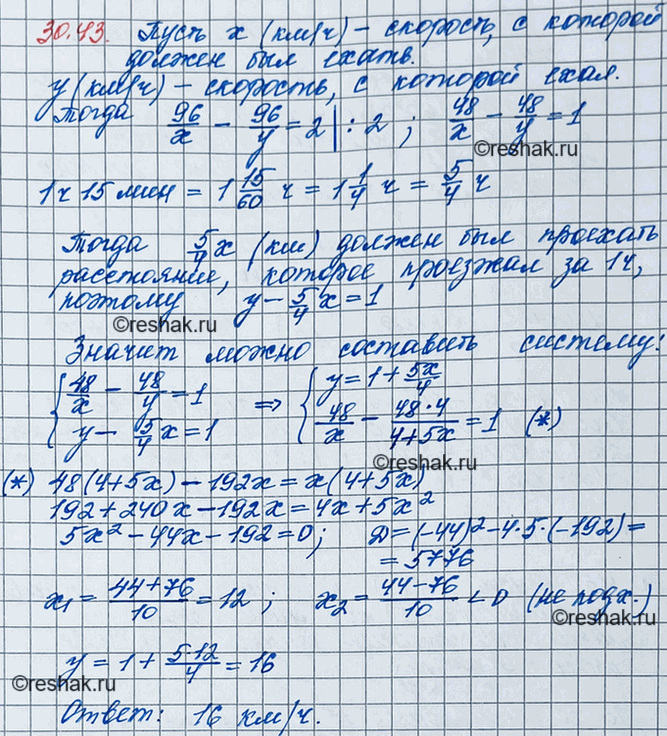 30.43. Пусть x (км/ч) – скорость, с которой
должен был ехать.
y (км/ч) – скорость, с которой ехал.
Тогда 96/x – 96/y = 2 | : 2 ; 48/x – 48/y = 1
1ч 15 мин = 1 15/60 ч = 1 1/4 ч = 5/4 ч
Тогда 5/4 x (км) должен был проехать
расстояние, которое проезжал за 1ч,
поэтому y – 5/4 x = 1
©reshak.ru
Значит можно составить систему:
{ 48/x – 48/y = 1 ⇒ { y = 1 + 5x/4
y – 5/4 x = 1 48/x – 48·4/(4+5x) = 1 (*)
©reshak.ru
(*) 48(4+5x) – 192x = x(4+5x)
192 + 240x – 192x = 4x + 5x²
5x² – 44x – 192 = 0; D = (-44)² – 4·5·(-192) =
= 5776
x₁ = (44+76)/10 = 12 ; x₂ = (44–76)/10 < 0 (не подх.)
©reshak.ru
y = 1 + 5·12/4 = 16
©reshak.ru
Ответ: 16 км/ч.